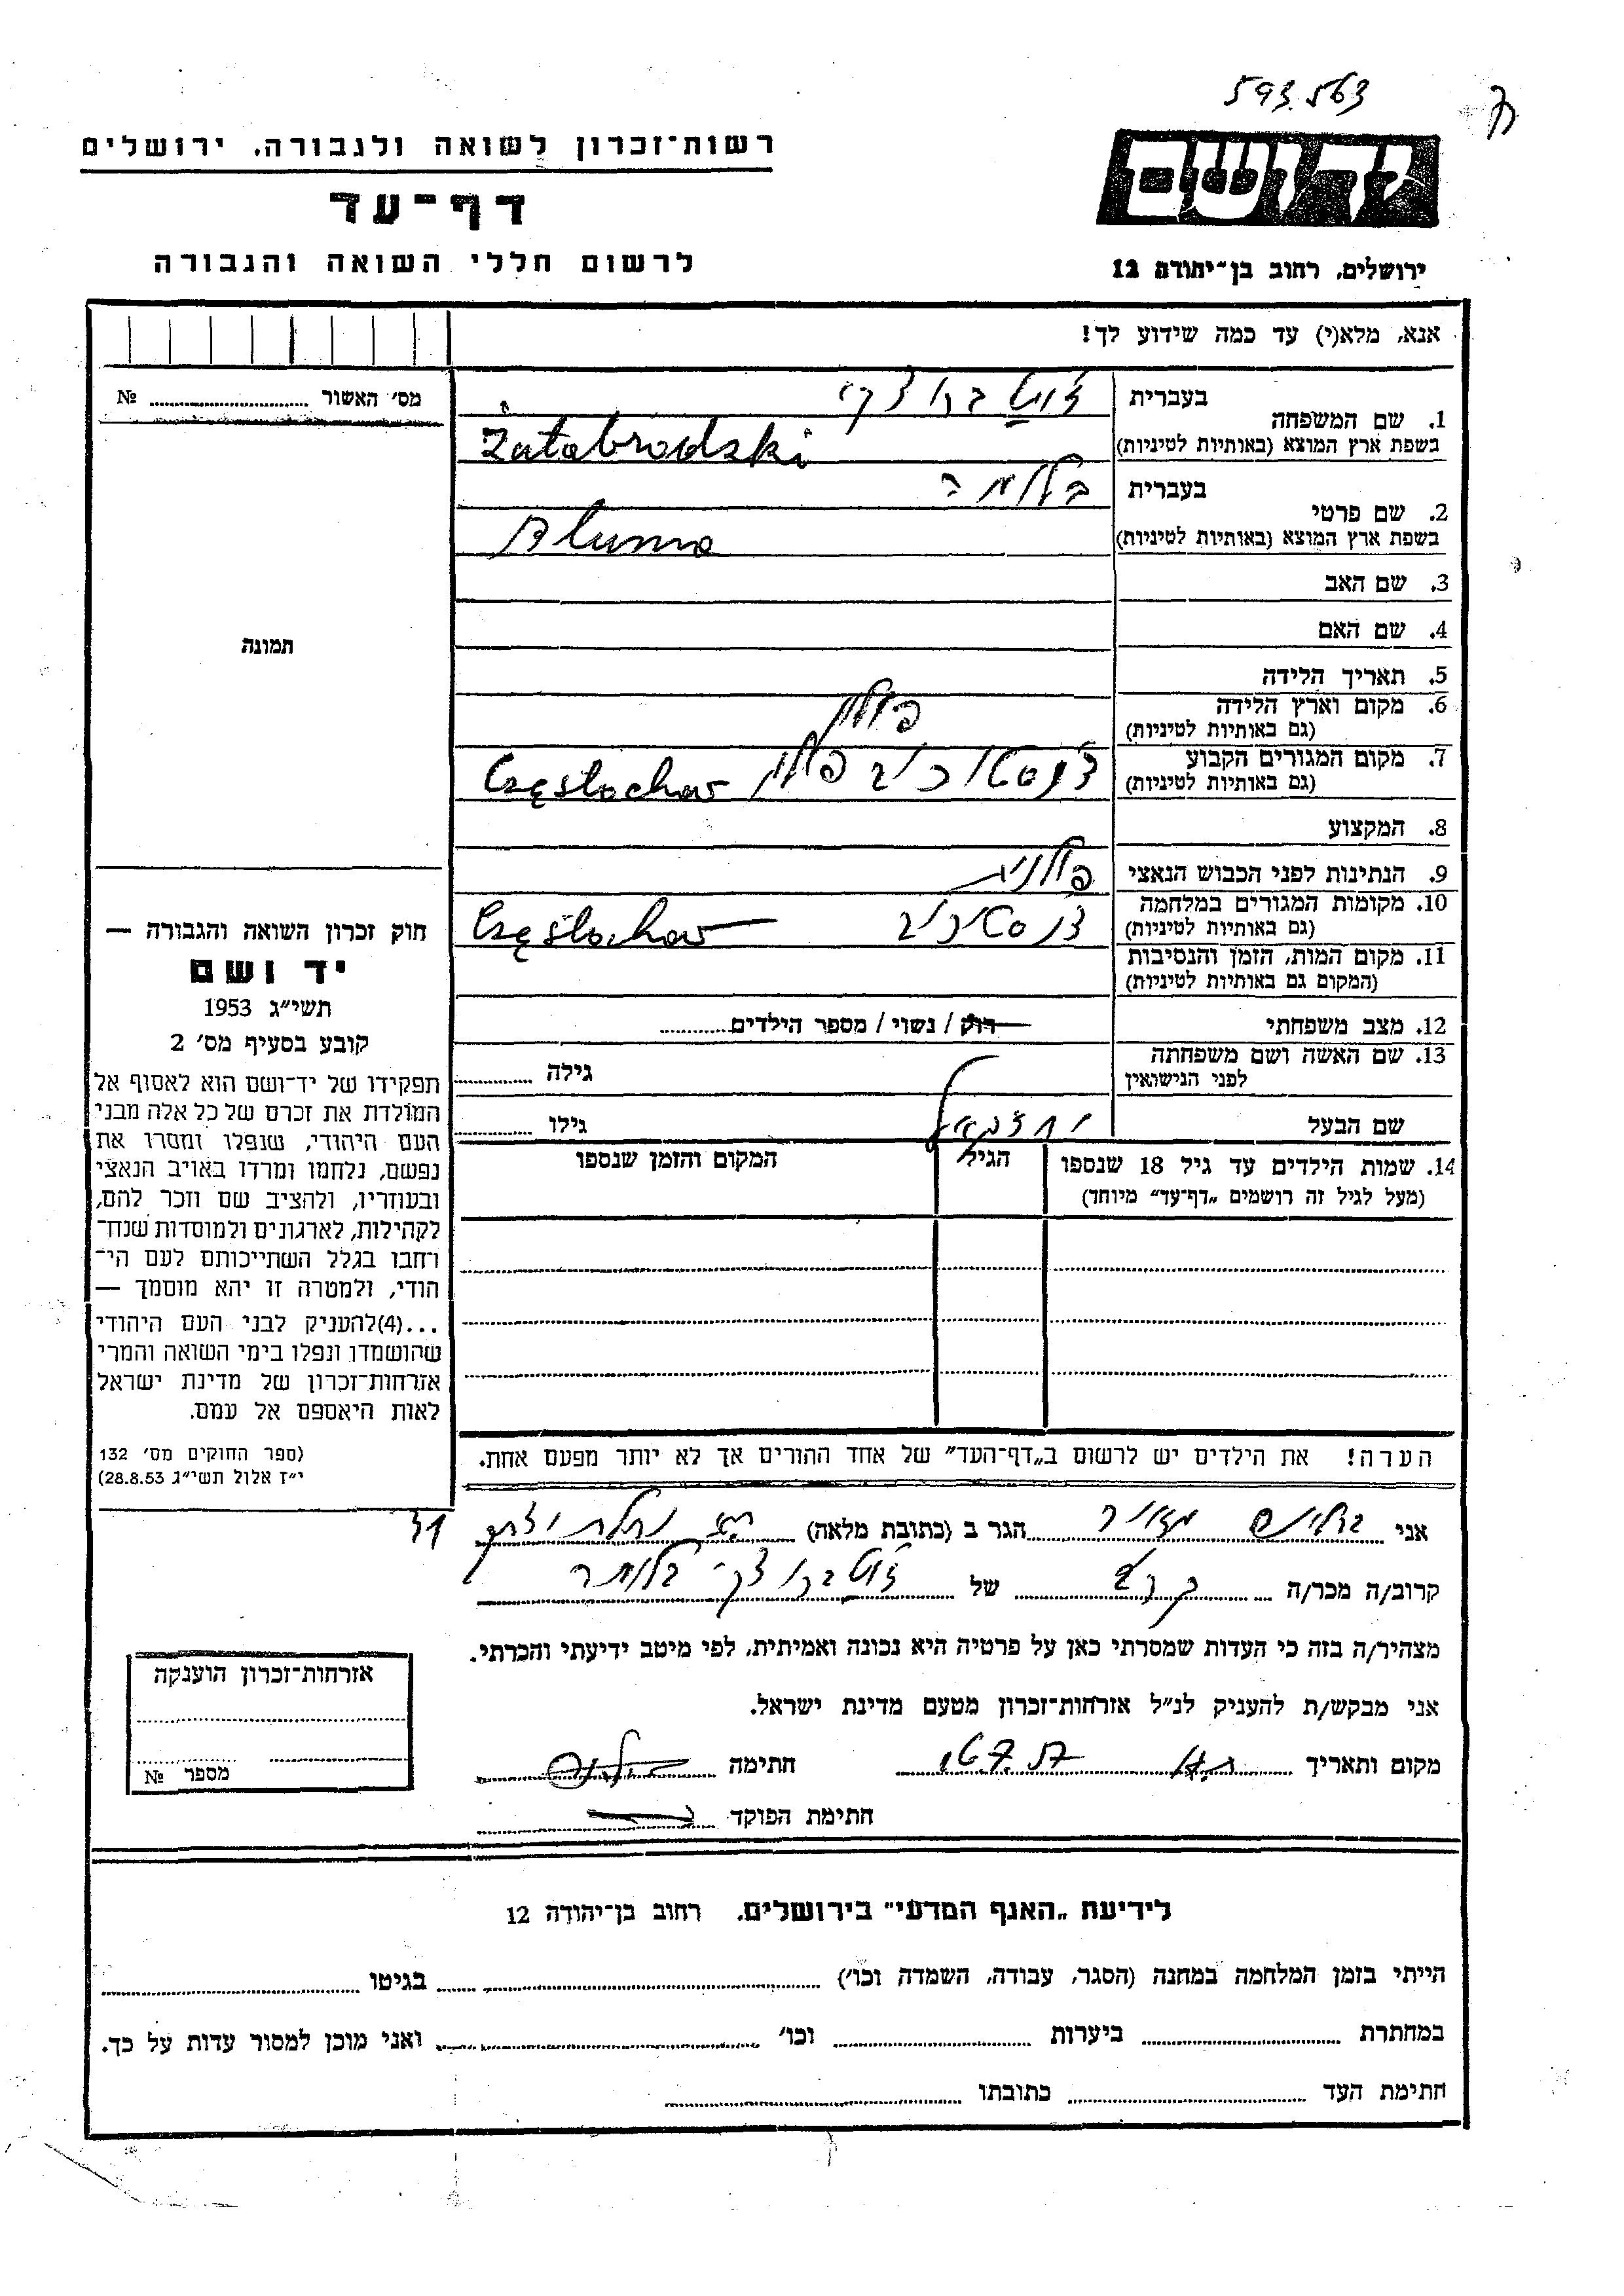 593563
רשות־זכרון לשואה ולגבורה, ירושלים
יד ושם
דף־עד
לרשום חללי השואה והגבורה
ירושלים, רחוב בן־יהודה 12
אנא, מלא(י) עד כמה שידוע לך!
מס׳ האשור № 
1. שם המשפחה
בעברית
בשפת ארץ המוצא (באותיות לטיניות) Zatabrodski
2. שם פרטי
בעברית בלומה
בשפת ארץ המוצא (באותיות לטיניות) Bluma
3. שם האב
4. שם האם
תמונה
5. תאריך הלידה
6. מקום וארץ הלידה פולין
(גם באותיות לטיניות)
7. מקום המגורים הקבוע צ'נסטוכוב פולין Częstochow
(גם באותיות לטיניות)
8. המקצוע
9. הנתינות לפני הכבוש הנאצי פולנית
10. מקומות המגורים במלחמה צ'נסטכוב Częstochow
(גם באותיות לטיניות)
11. מקום המות, הזמן והנסיבות
(המקום גם באותיות לטיניות)
12. מצב משפחתי רוק / נשוי / מספר הילדים
13. שם האשה ושם משפחתה
לפני הנישואין גילה
שם הבעל גילו
14. שמות הילדים עד גיל 18 שנספו הגיל המקום והזמן שנספו
(מעל לגיל זה רושמים „דף־עד" מיוחד)
חוק זכרון השואה והגבורה —
יד ושם
תשי״ג 1953
קובע בסעיף מס׳ 2
תפקידו של יד־ושם הוא לאסוף אל
המולדת את זכרם של כל אלה מבני
העם היהודי, שנפלו ומסרו את
נפשם, נלחמו ומרדו באויב הנאצי
ובעוזריו, ולהציב שם וזכר להם,
לקהילות, לארגונים ולמוסדות שנח־
רחבו בגלל השתייכותם לעם הי־
הודי, ולמטרה זו יהא מוסמך —
...(4)להעניק לבני העם היהודי
שהושמדו ונפלו בימי השואה והמרי
אזרחות־זכרון של מדינת ישראל
לאות היאספם אל עמם.
(ספר החוקים מס׳ 132
י״ז אלול תשי״ג 28.8.53)
הערה! את הילדים יש לרשום ב„דף־העד" של אחד ההורים אך לא יותר מפעם אחת.
אני הגר ב (כתובת מלאה)
קרוב/ה מכר/ה של
מצהיר/ה בזה כי העדות שמסרתי כאן על פרטיה היא נכונה ואמיתית, לפי מיטב ידיעתי והכרתי.
אני מבקש/ת להעניק לנ״ל אזרחות־זכרון מטעם מדינת ישראל.
מקום ותאריך חתימה
חתימת הפוקד
אזרחות־זכרון הוענקה
מספר №
לידיעת „האגף המדעי" בירושלים, רחוב בן־יהודה 12
הייתי בזמן המלחמה במחנה (הסגר, עבודה, השמדה וכו׳) בגיטו
במחתרת ביערות וכו׳ ואני מוכן למסור עדות על כך.
חתימת העד כתובתו